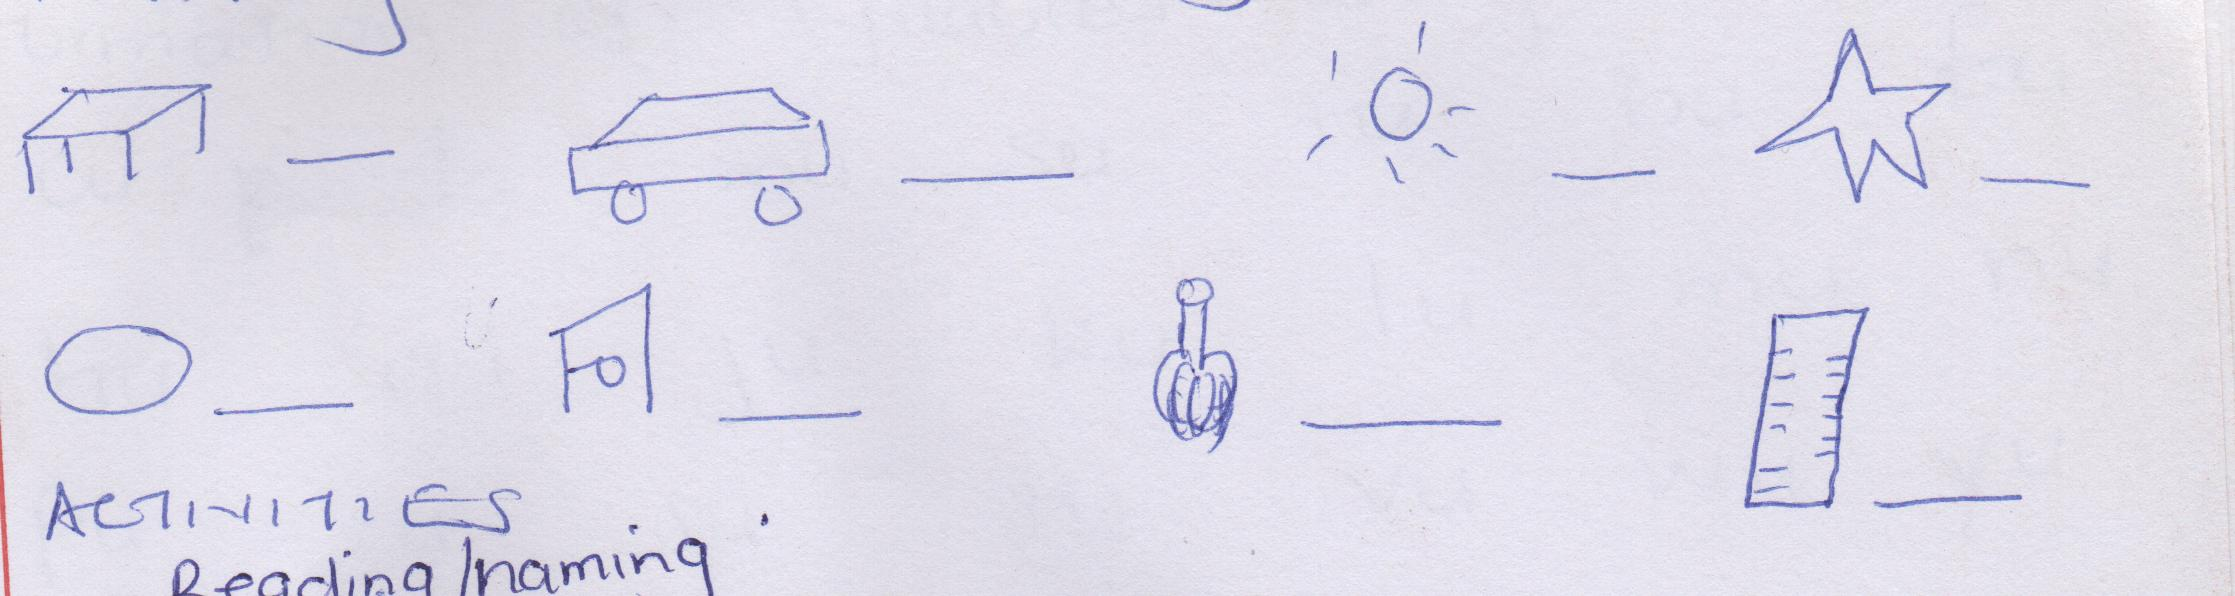 ACTIVITIES
Reading/naming